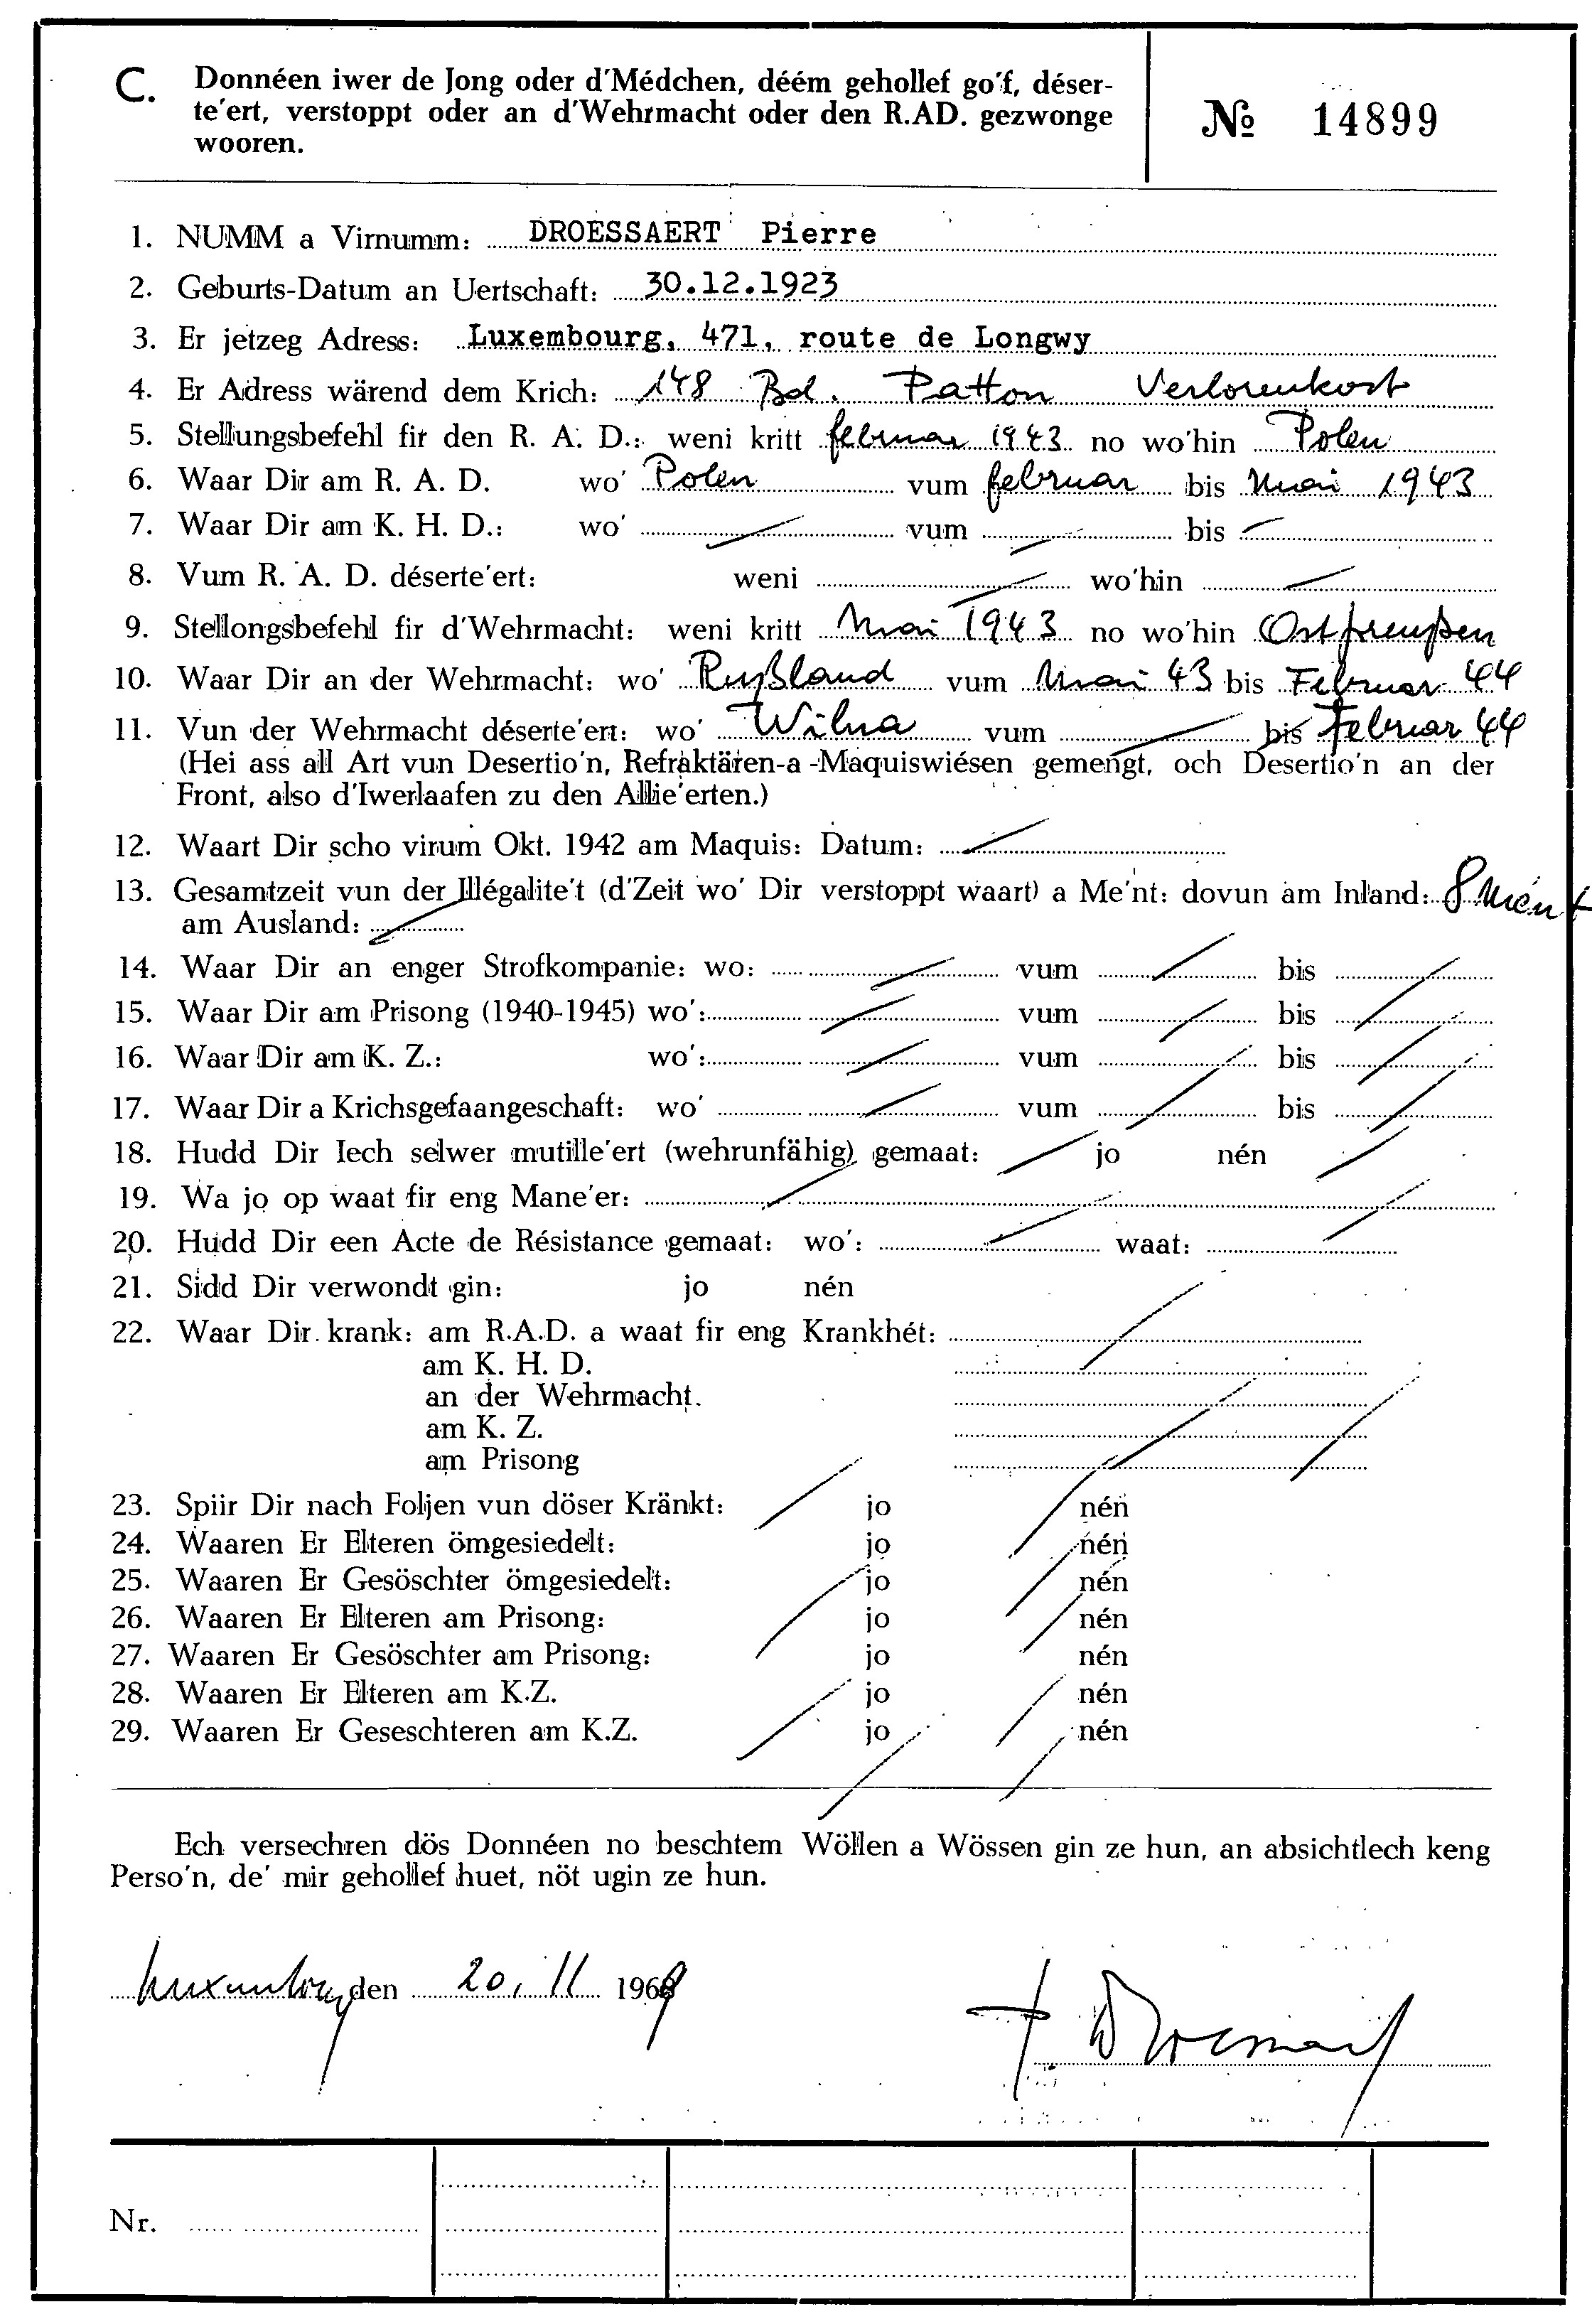 C. Donnéen iwer de Jong oder d'Médchen, déém gehollef go'f, déser-
te'ert, verstoppt oder an d'Wehrmacht oder den R.AD. gezwonge
wooren.
№ 14899
1. NUMM a Virnumm: DROESSAERT Pierre
2. Geburts-Datum an Uertschaft: 30.12.1923
3. Er jetzeg Adress: Luxembourg, 471, route de Longwy
4. Er Adress wärend dem Krich: 148 Bd. Patton Verlorenkost
5. Stellungsbefehl fir den R. A. D.: weni kritt februar 1943 no wo'hin Polen
6. Waar Dir am R. A. D. wo' Polen vum februar bis Mai 1943
7. Waar Dir am K. H. D.: wo' vum bis
8. Vum R. A. D. déserte'ert: weni wo'hin
9. Stellongsbefehl fir d'Wehrmacht: weni kritt Mai 1943 no wo'hin Ostpreußen
10. Waar Dir an der Wehrmacht: wo' Rußland vum Mai 43 bis Februar 44
11. Vun der Wehrmacht déserte'ert: wo' Wilna vum bis Februar 44
(Hei ass all Art vun Desertio'n, Refraktären-a -Maquiswiésen gemengt, och Desertio'n an der
Front, also d'Iwerlaafen zu den Allie'erten.)
12. Waart Dir scho virum Okt. 1942 am Maquis: Datum:
13. Gesamtzeit vun der Illégalite't (d'Zeit wo' Dir verstoppt waart) a Me'nt: dovun am Inland: 8 Mént
am Ausland:
14. Waar Dir an enger Strofkompanie: wo: vum bis
15. Waar Dir am Prisong (1940-1945) wo': vum bis
16. Waar Dir am K. Z.: wo': vum bis
17. Waar Dir a Krichsgefaangeschaft: wo' vum bis
18. Hudd Dir Iech selwer mutille'ert (wehrunfähig) gemaat: jo nén
19. Wa jo op waat fir eng Mane'er:
20. Hudd Dir een Acte de Résistance gemaat: wo': waat:
21. Sidd Dir verwondt gin: jo nén
22. Waar Dir krank: am R.A.D. a waat fir eng Krankhét:
am K. H. D.
an der Wehrmacht.
am K. Z.
am Prisong
23. Spiir Dir nach Foljen vun döser Kränkt: jo nén
24. Waaren Er Elteren ömgesiedelt: jo nén
25. Waaren Er Gesöschter ömgesiedelt: jo nén
26. Waaren Er Elteren am Prisong: jo nén
27. Waaren Er Gesöschter am Prisong: jo nén
28. Waaren Er Elteren am K.Z. jo nén
29. Waaren Er Geseschteren am K.Z. jo nén
Ech versechren dös Donnéen no beschtem Wöllen a Wössen gin ze hun, an absichtlech keng
Perso'n, de' mir gehollef huet, nöt ugin ze hun.
Luxembourg den 20. 11 1969
Nr.